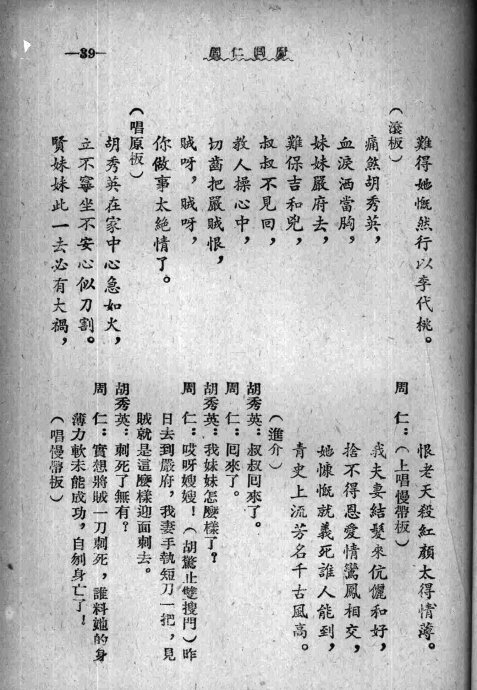 周仁囘府
—39—
難得她慨然行以李代桃。
(滾板)
痛煞胡秀英,
血淚洒當胸,
妹妹嚴府去,
難保吉和兇,
叔叔不見回,
教人操心中,
切齒把嚴賊恨,
賊呀,賊呀,
你做事太絕情了。
(唱原板)
胡秀英在家中心急如火,
立不寧坐不安心似刀割。
賢妹妹此一去必有大禍,
恨老天殺紅顏太得情薄。
周 仁:(上唱慢帶板)
我夫妻結髮來伉儷和好,
捨不得恩愛情鸞鳳相交,
她慷慨就義死誰人能到,
青史上流芳名千古風高。
(進介)
胡秀英:叔叔回來了。
周 仁:回來了。
胡秀英:我妹妹怎麼樣了?
周 仁:哎呀嫂嫂!(胡驚止雙搜門)昨
日去到嚴府,我妻手執短刀一把,見
賊就是這麼樣迎面刺去。
胡秀英:刺死了無有?
周 仁:實想將賊一刀刺死,誰料她的身
薄力軟未能成功,自刎身亡了!
(唱慢帶板)